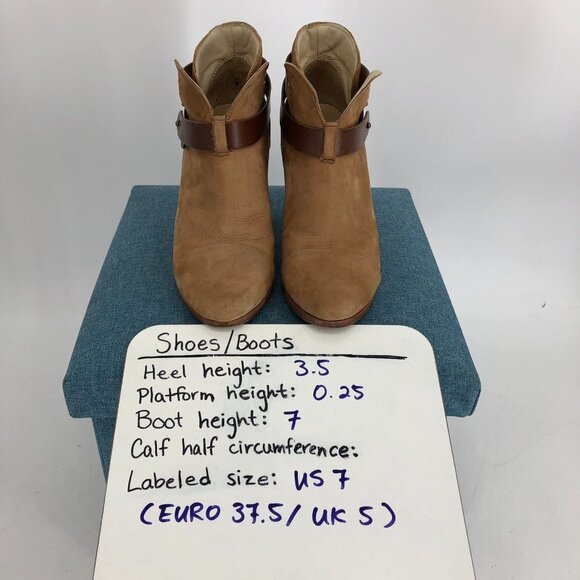 Shoes/Boots
Heel height: 3.5
Platform height: 0.25
Boot height: 7
Calf half circumference:
Labeled size: US 7
(EURO 37.5/ UK 5)